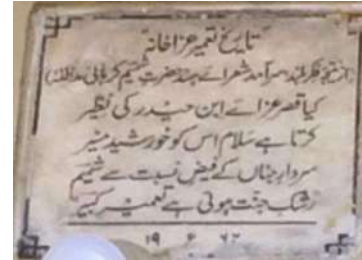 "تاریخ تعمیر عزاخانہ"
(از نتیجہ فکر بلند سرآمد شعرائے ہند حضرتِ شمیم کرہانی مدظلہ)
کیا قصرِ عزائے ابن حیدر کی نظیر
کرتا ہے سلام اس کو خورشید منیر
سردارِ جناں کے فیض نسبت سے شمیم
رشک جنت ہوئی ہے تعمیر
۱۹۶۲ء